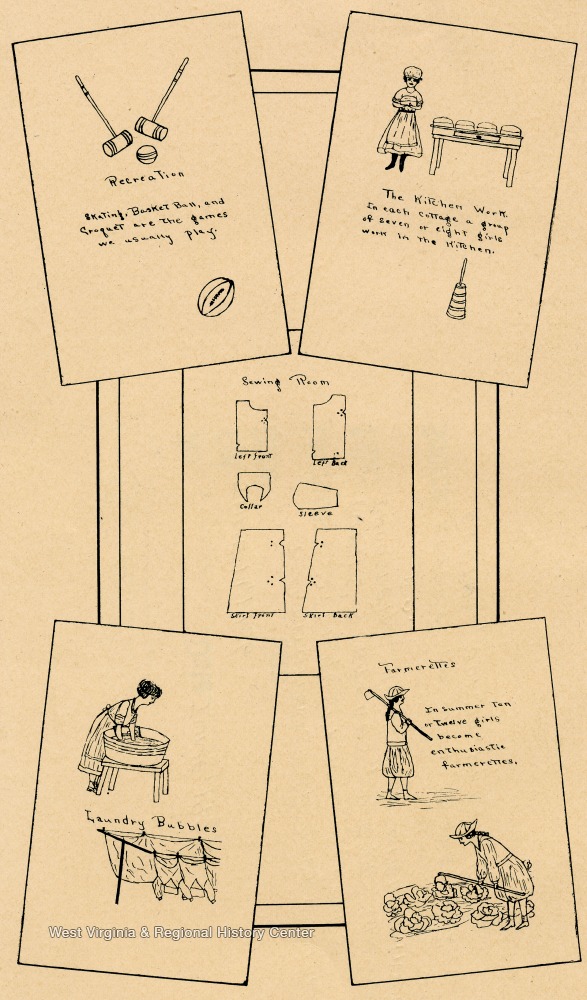 Recreation
Skating, Basket Ball, and
Croquet are the games
we usually play.
The Kitchen Work.
In each cottage a group
of seven or eight girls
work in the Kitchen.
Sewing Room
Left front
Left Back
Collar
Sleeve
Skirt front
Skirt Back
Laundry Bubbles
Farmerettes
In summer ten
or twelve girls
become
enthusiastic
farmerettes.
West Virginia & Regional History Center